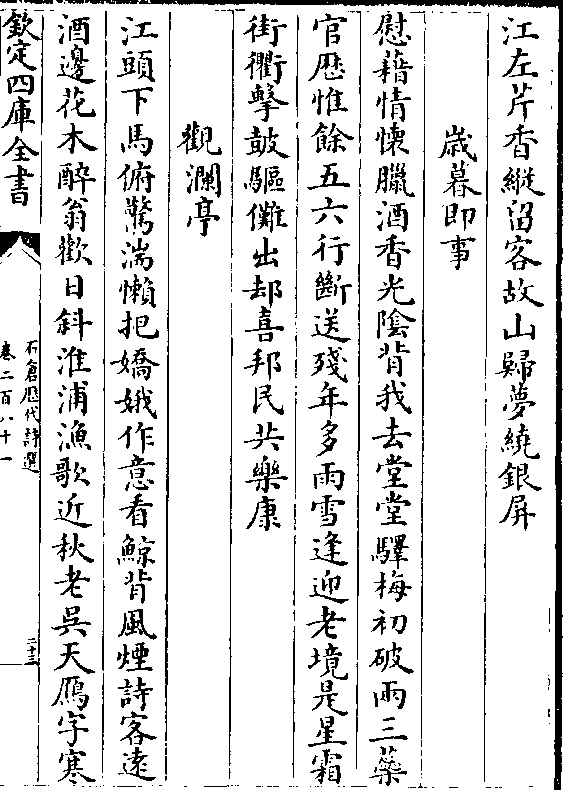 江左芹香縱留客故山歸夢繞銀屏
歲暮即事
慰藉情懷臘酒香光陰背我去堂堂驛梅初破兩三蘂
官厯惟餘五六行斷送殘年多雨雪逢迎老境是星霜
街衢擊鼓驅儺出却喜邦民共樂康
觀瀾亭
江頭下馬俯驚湍懶把嬌娥作意看鯨背風煙詩客逺
酒邊花木醉翁歡日斜淮浦漁歌近秋老吳天鴈字寒
欽定四庫全書
石倉歴代詩選
卷二百八十一
二十三